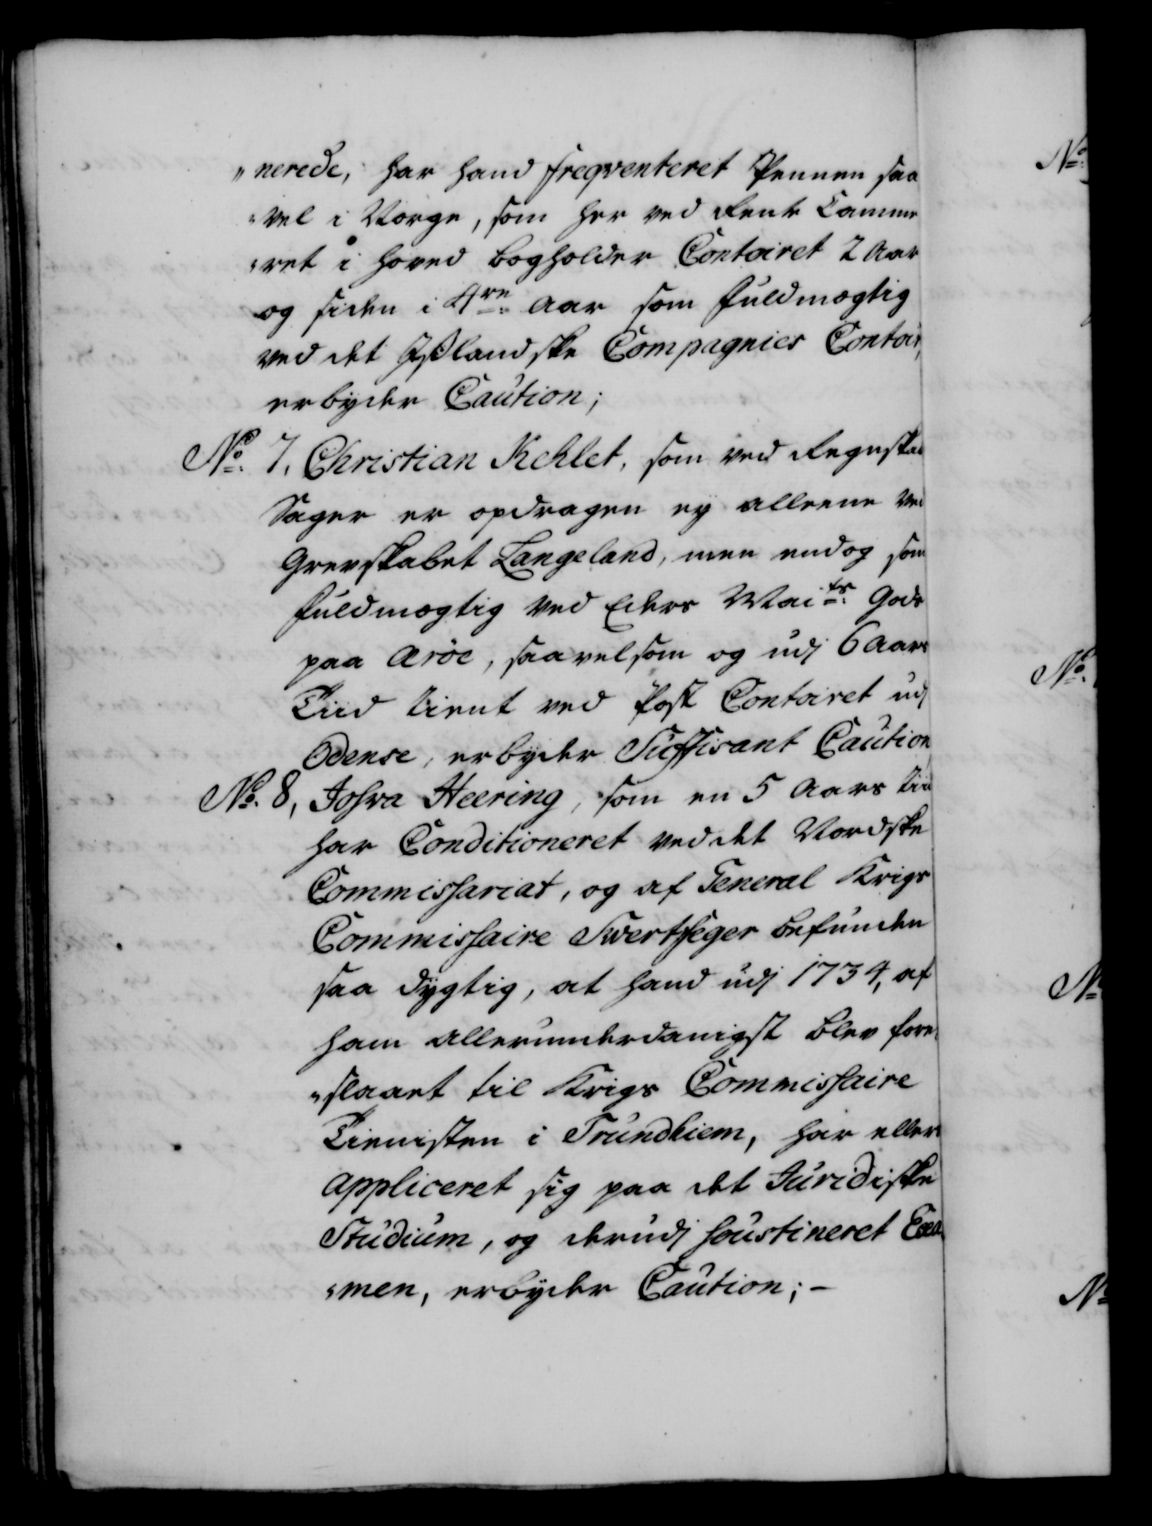 „nerede, har hand freqventeret Pennen saa
„vel i Norge, som her ved Rente Camme
„ret i hoved bogholder Contoiret 2 Aar
og siden i 4re Aar som fuldmægtig
ved det Ißlandske Compagnies Contoir,
erbyder Caution;
No. 7. Christian Kehlet, som ved Regnskab
Sager er opdragen ey alleene ved
Grevskabet Langeland, men endog som
fuldmægtig ved Eders Maits. Gods
paa Æröe, saavelsom og udj 6 Aars
Tiid tient ved Post Contoiret udj
Odense, erbyder Suffisant Caution
No. 8, Josva Heering, som en 5 Aars tiid
har Conditioneret ved det Nordske
Commissariat, og af General Krigs
Commissaire Swertfeger befunden
saa dygtig, at hand udj 1734, af
ham allerunderdanigst blev fore
„slaaet til Krigs Commissaire
Tienisten i Trundhiem, har ellers
appliceret sig paa det Juridiske
Studium, og derudj soustineret Exa
„men, erbyder Caution; –
No.
No.
No
No